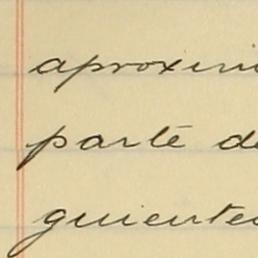 aproxim
parte de
guientes